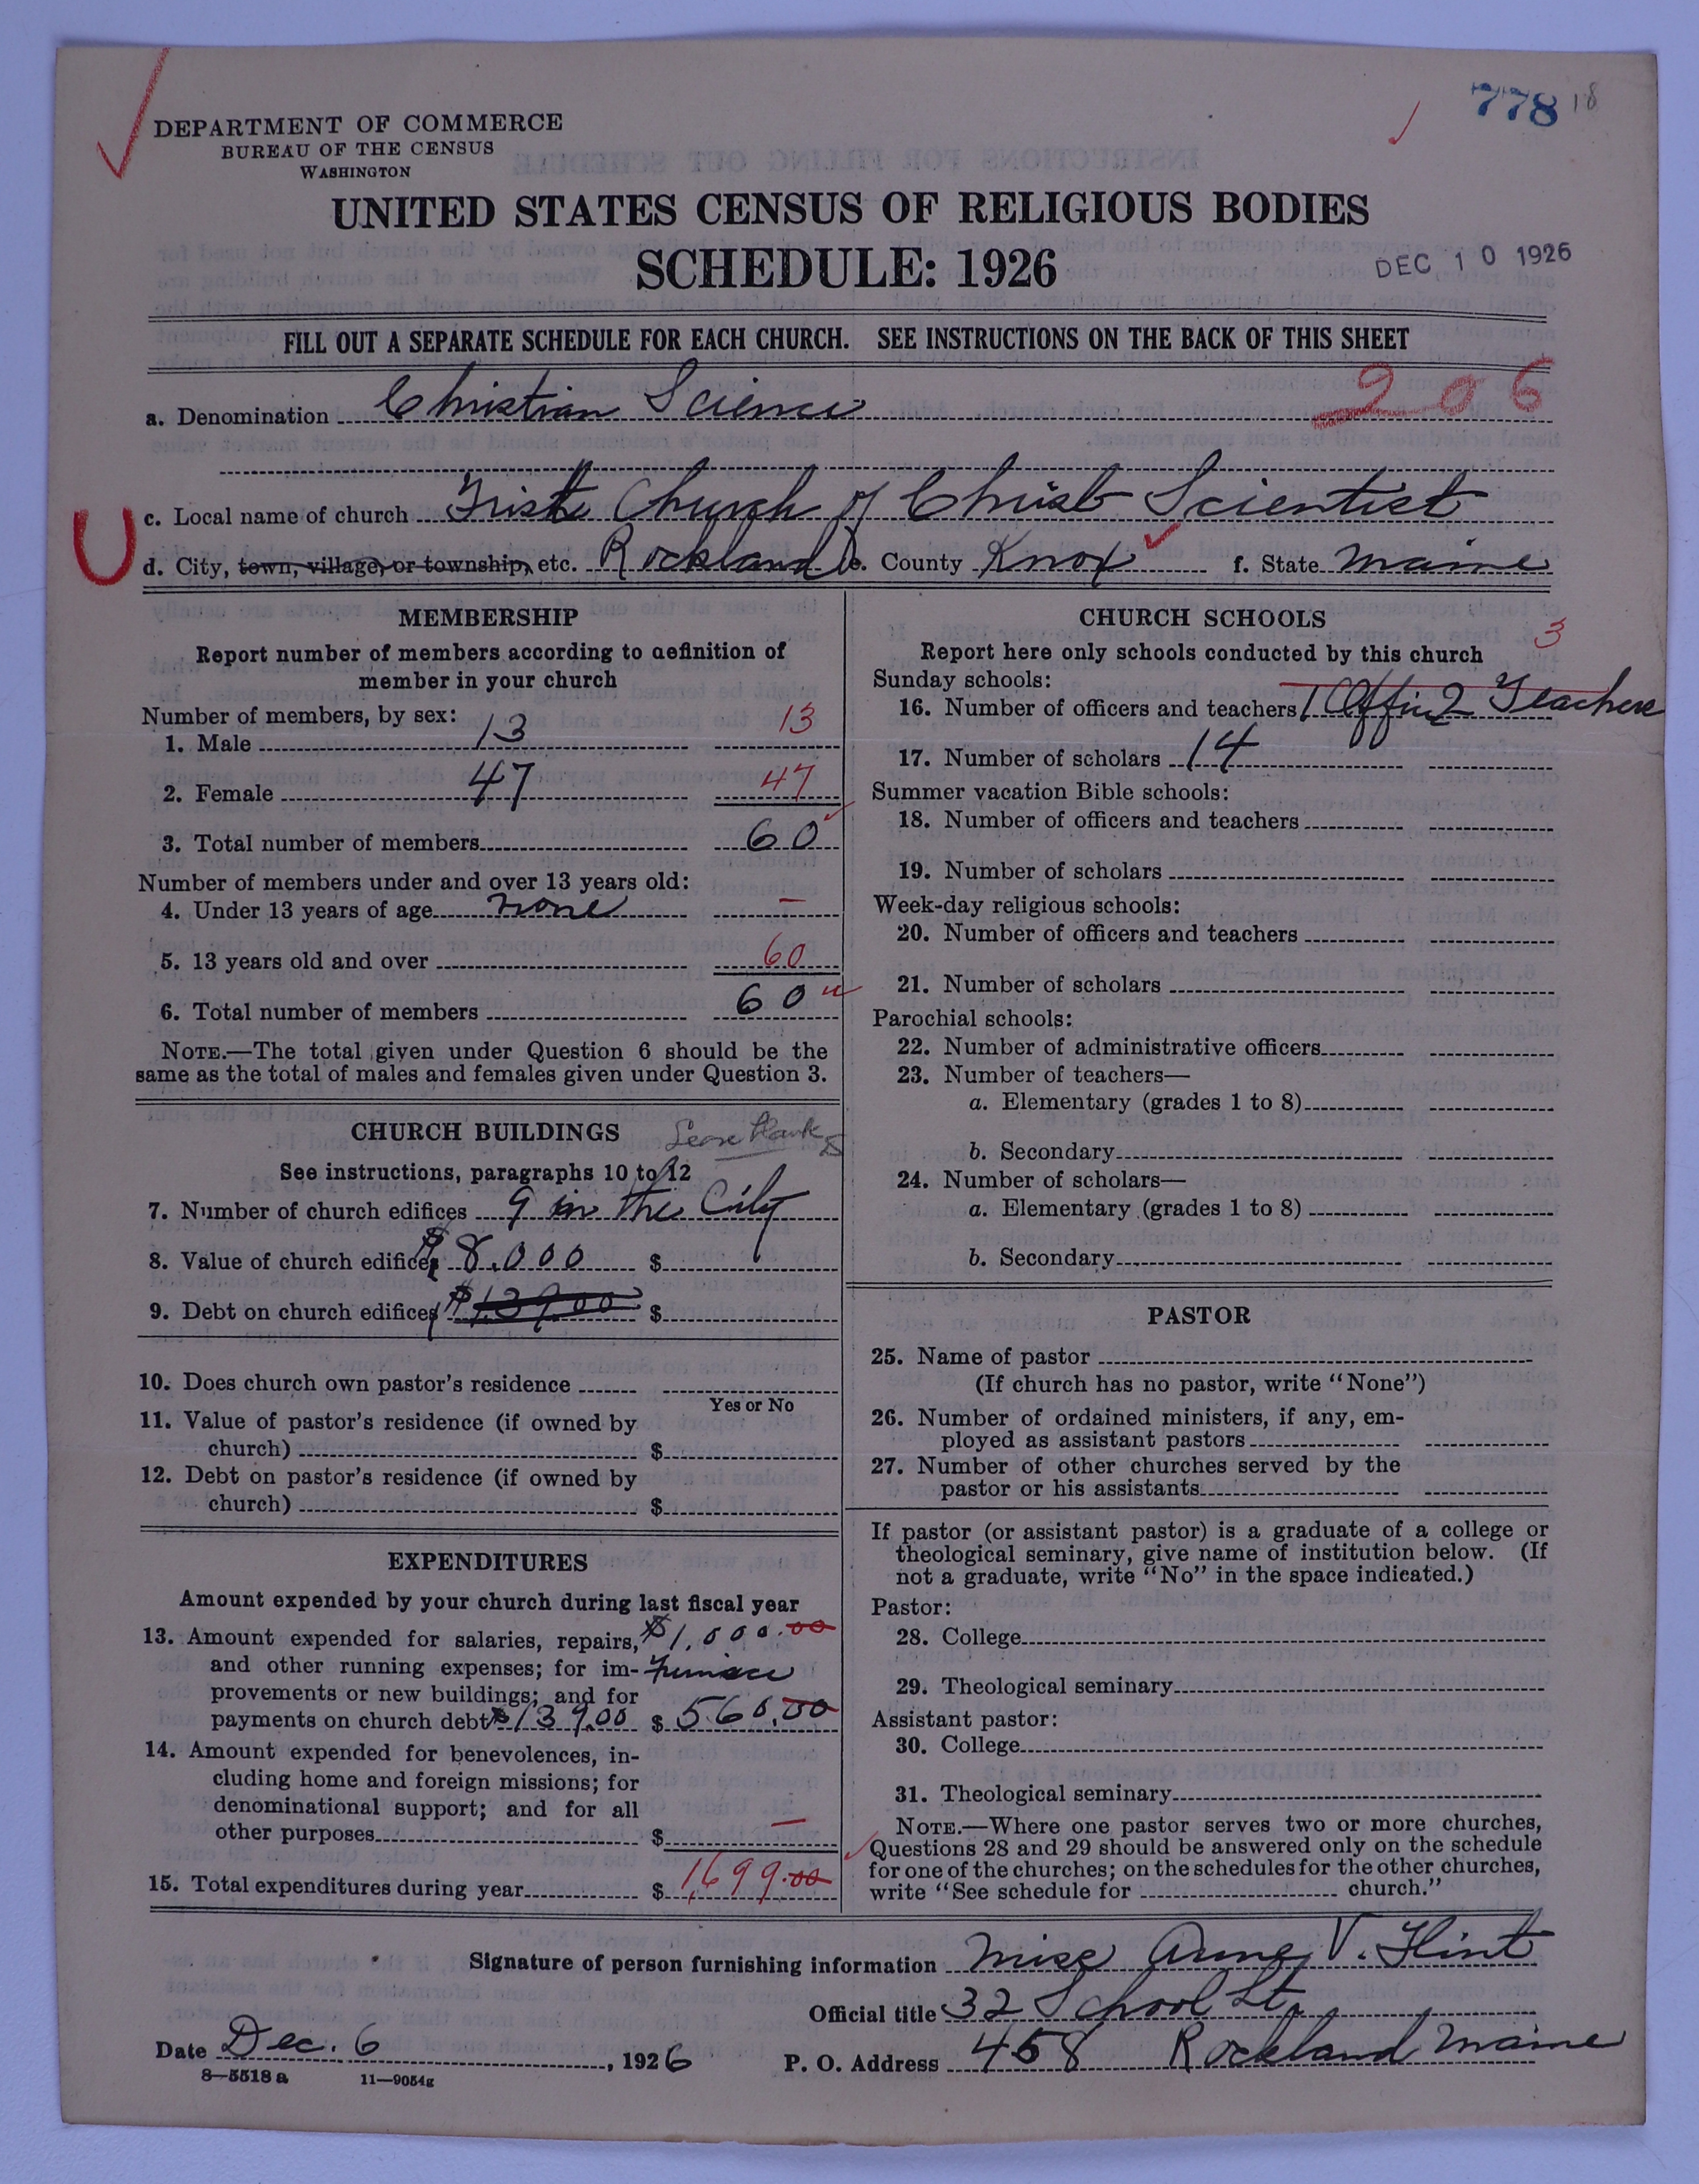 778 18
DEPARTMENT OF COMMERCE
BUREAU OF THE CENSUS
WASHINGTON
UNITED STATES CENSUS OF RELIGIOUS BODIES
SCHEDULE: 1926
DEC 10 1926
FILL OUT A SEPARATE SCHEDULE FOR EACH CHURCH. SEE INSTRUCTIONS ON THE BACK OF THIS SHEET
a. Denomination Christian Science 206
c. Local name of church First Church of Christ Scientist
d. City, town, village, or township, etc. Rockland e. County Knox f. State Maine
MEMBERSHIP
Report number of members according to definition of
member in your church
Number of members, by sex:
1. Male 13 13
2. Female 47 47
3. Total number of members 60
Number of members under and over 13 years old:
4. Under 13 years of age none –
5. 13 years old and over 60
6. Total number of members 60
NOTE.—The total given under Question 6 should be the
same as the total of males and females given under Question 3.
CHURCH BUILDINGS
Leave blank
See instructions, paragraphs 10 to 12
7. Number of church edifices 9 in the City
8. Value of church edifices $8,000 $
9. Debt on church edifices $139.00 $
10. Does church own pastor's residence
Yes or No
11. Value of pastor's residence (if owned by
church) $
12. Debt on pastor's residence (if owned by
church) $
EXPENDITURES
Amount expended by your church during last fiscal year
13. Amount expended for salaries, repairs, $1,000.00
and other running expenses; for im- Furnace
provements or new buildings; and for
payments on church debt $139.00 $ 560.00
14. Amount expended for benevolences, in-
cluding home and foreign missions; for
denominational support; and for all
other purposes $ –
15. Total expenditures during year $ 1,699.00
CHURCH SCHOOLS
3
Report here only schools conducted by this church
Sunday schools:
16. Number of officers and teachers 1 Offi 2 Teachers
17. Number of scholars 14
Summer vacation Bible schools:
18. Number of officers and teachers
19. Number of scholars
Week-day religious schools:
20. Number of officers and teachers
21. Number of scholars
Parochial schools:
22. Number of administrative officers
23. Number of teachers—
a. Elementary (grades 1 to 8)
b. Secondary
24. Number of scholars—
a. Elementary (grades 1 to 8)
b. Secondary
PASTOR
25. Name of pastor
(If church has no pastor, write "None")
26. Number of ordained ministers, if any, em-
ployed as assistant pastors
27. Number of other churches served by the
pastor or his assistants
If pastor (or assistant pastor) is a graduate of a college or
theological seminary, give name of institution below. (If
not a graduate, write "No" in the space indicated.)
Pastor:
28. College
29. Theological seminary
Assistant pastor:
30. College
31. Theological seminary
NOTE.—Where one pastor serves two or more churches,
Questions 28 and 29 should be answered only on the schedule
for one of the churches; on the schedules for the other churches,
write "See schedule for church."
Signature of person furnishing information Miss Anne V. Flint
Official title 32 School St.
Date Dec. 6, 1926 P. O. Address 458 Rockland Maine
8—5518 a 11—9054g